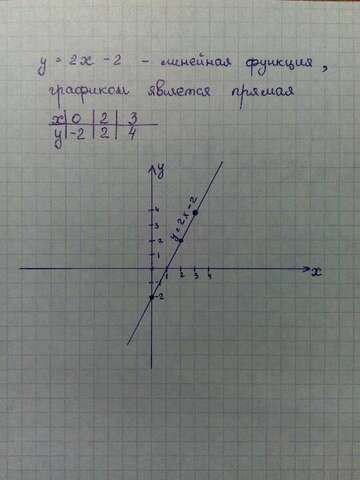 y = 2x - 2 - линейная функция,
графиком является прямая
x | 0 | 2 | 3
y | -2 | 2 | 4
y
4
3
2
1
y = 2x - 2
1 2 3 4
x
-2